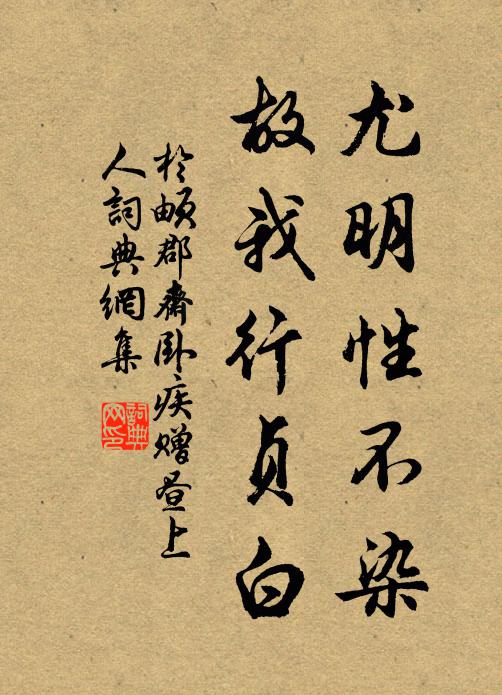 尤明性不染
故我行貞白
於頔郡齋臥疾贈昼上
人詞典網集
詞典
网印